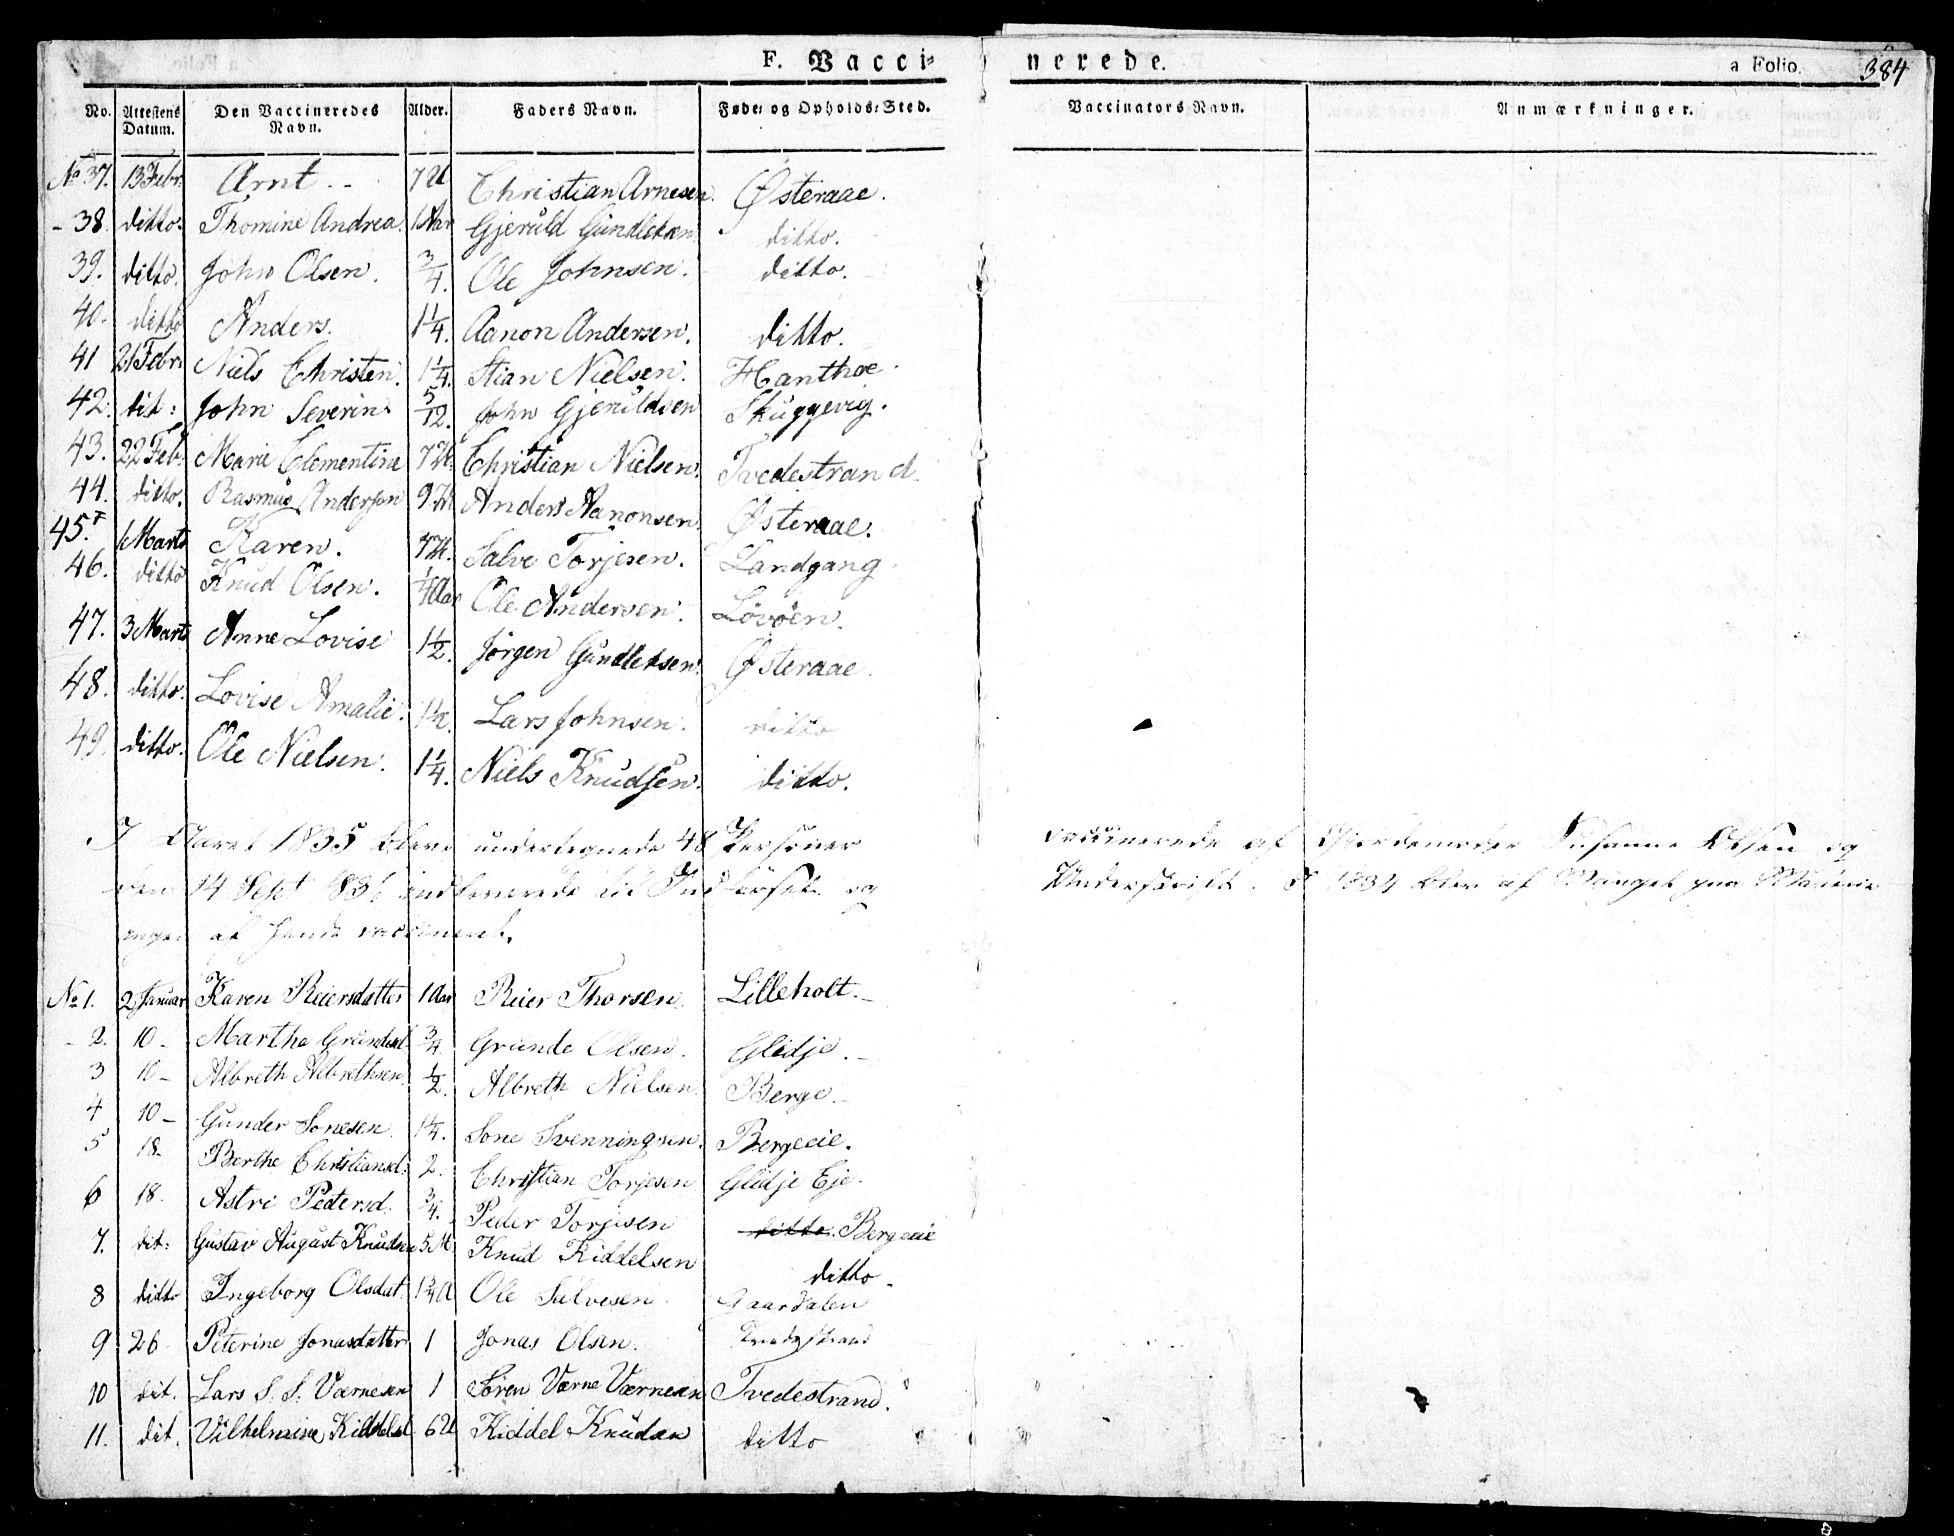 F. Vacci- nerede. a Folio. 384
No. Attestens Datum. Den Vaccineredes Navn. Alder. Faders Navn. Føde- og Opholds-Sted. Vaccinators Navn. Anmærkninger.
No 37. 13 Febr. Arnt 7 U Christian Arnesen. Østeraae.
- 38. ditto. Thomine Andrea 1 Aar Gjeruld Gundleksen ditto.
39. ditto. John Olsen. 3/4. Ole Johnsen. ditto.
40. ditto Anders. 1 1/4. Aanon Andersen. ditto.
41 21 Febr. Niels Christen. 1 1/4. Stian Nielsen. Hanthoe.
42. dit: John Severin 5/12. John Gjeruldsen Skuggevig.
43. 22 Feb. Marie Clementine 7 Christian Nielsen. Tvedestrand.
44. ditto. Rasmus Anderson 9 M Anders Aanonsen. Østeraae.
45. 1 Marts Karen. Salve Torjesen. Landgang.
46. ditto Knud Olsen. 1/4 Aar Ole Andersen. Lövöen.
47. 3 Marts Anne Lovise 1 1/2. Jörgen Gundleksen. Østeraae.
48. ditto. Lovise Amalie. Lars Johnsen. ditto
49. ditto. Ole Nielsen. 1 1/4. Niels Knudsen. ditto.
I Aaret 1835 bleve undertegnede 48 Personer vaccinerede af Gjordemoder Susanne Olsen og
den 14 Sept 183 indleverede til Indførsel og Underskrift. I 1834 blev af Mangel paa Materie
ingen af hende vaccineret.
No 1. 2 Januar Karen Reiersdatter 1 Aar Reier Thorsen. Lilleholt.
- 2. 10 - Marthe Grundesd. 3/4. Grunde Olsen. Glidje.
3 10 - Albreth Albrethsen 1/2. Albreth Nielsen. Berge.
4 10 - Gunder Sonesen. 1 1/4. Sone Svenningsen. Bergeeie.
5 18. Berthe Christiansd. 2. Christian Torjesen Glidje Eje.
6 18. Astri Pedersd. 3/4. Peder Torjesen ditto. Bergeeie
7. dit: Gustav August Knudsen 5 M Knud Kiddelsen ditto
8 ditto Ingeborg Olsdat. 1 3/4 A Ole Sulvesen. Gaardalen
9 26 Peterine Jonasdatter 1 Jonas Olsen.
10 dit. Lars S. S. Værnesen 1 Sören Værne Værnesen Tvedestrand.
11. dit. Vilhelmine Kiddelsd 6 U Kiddel Knudsen ditto